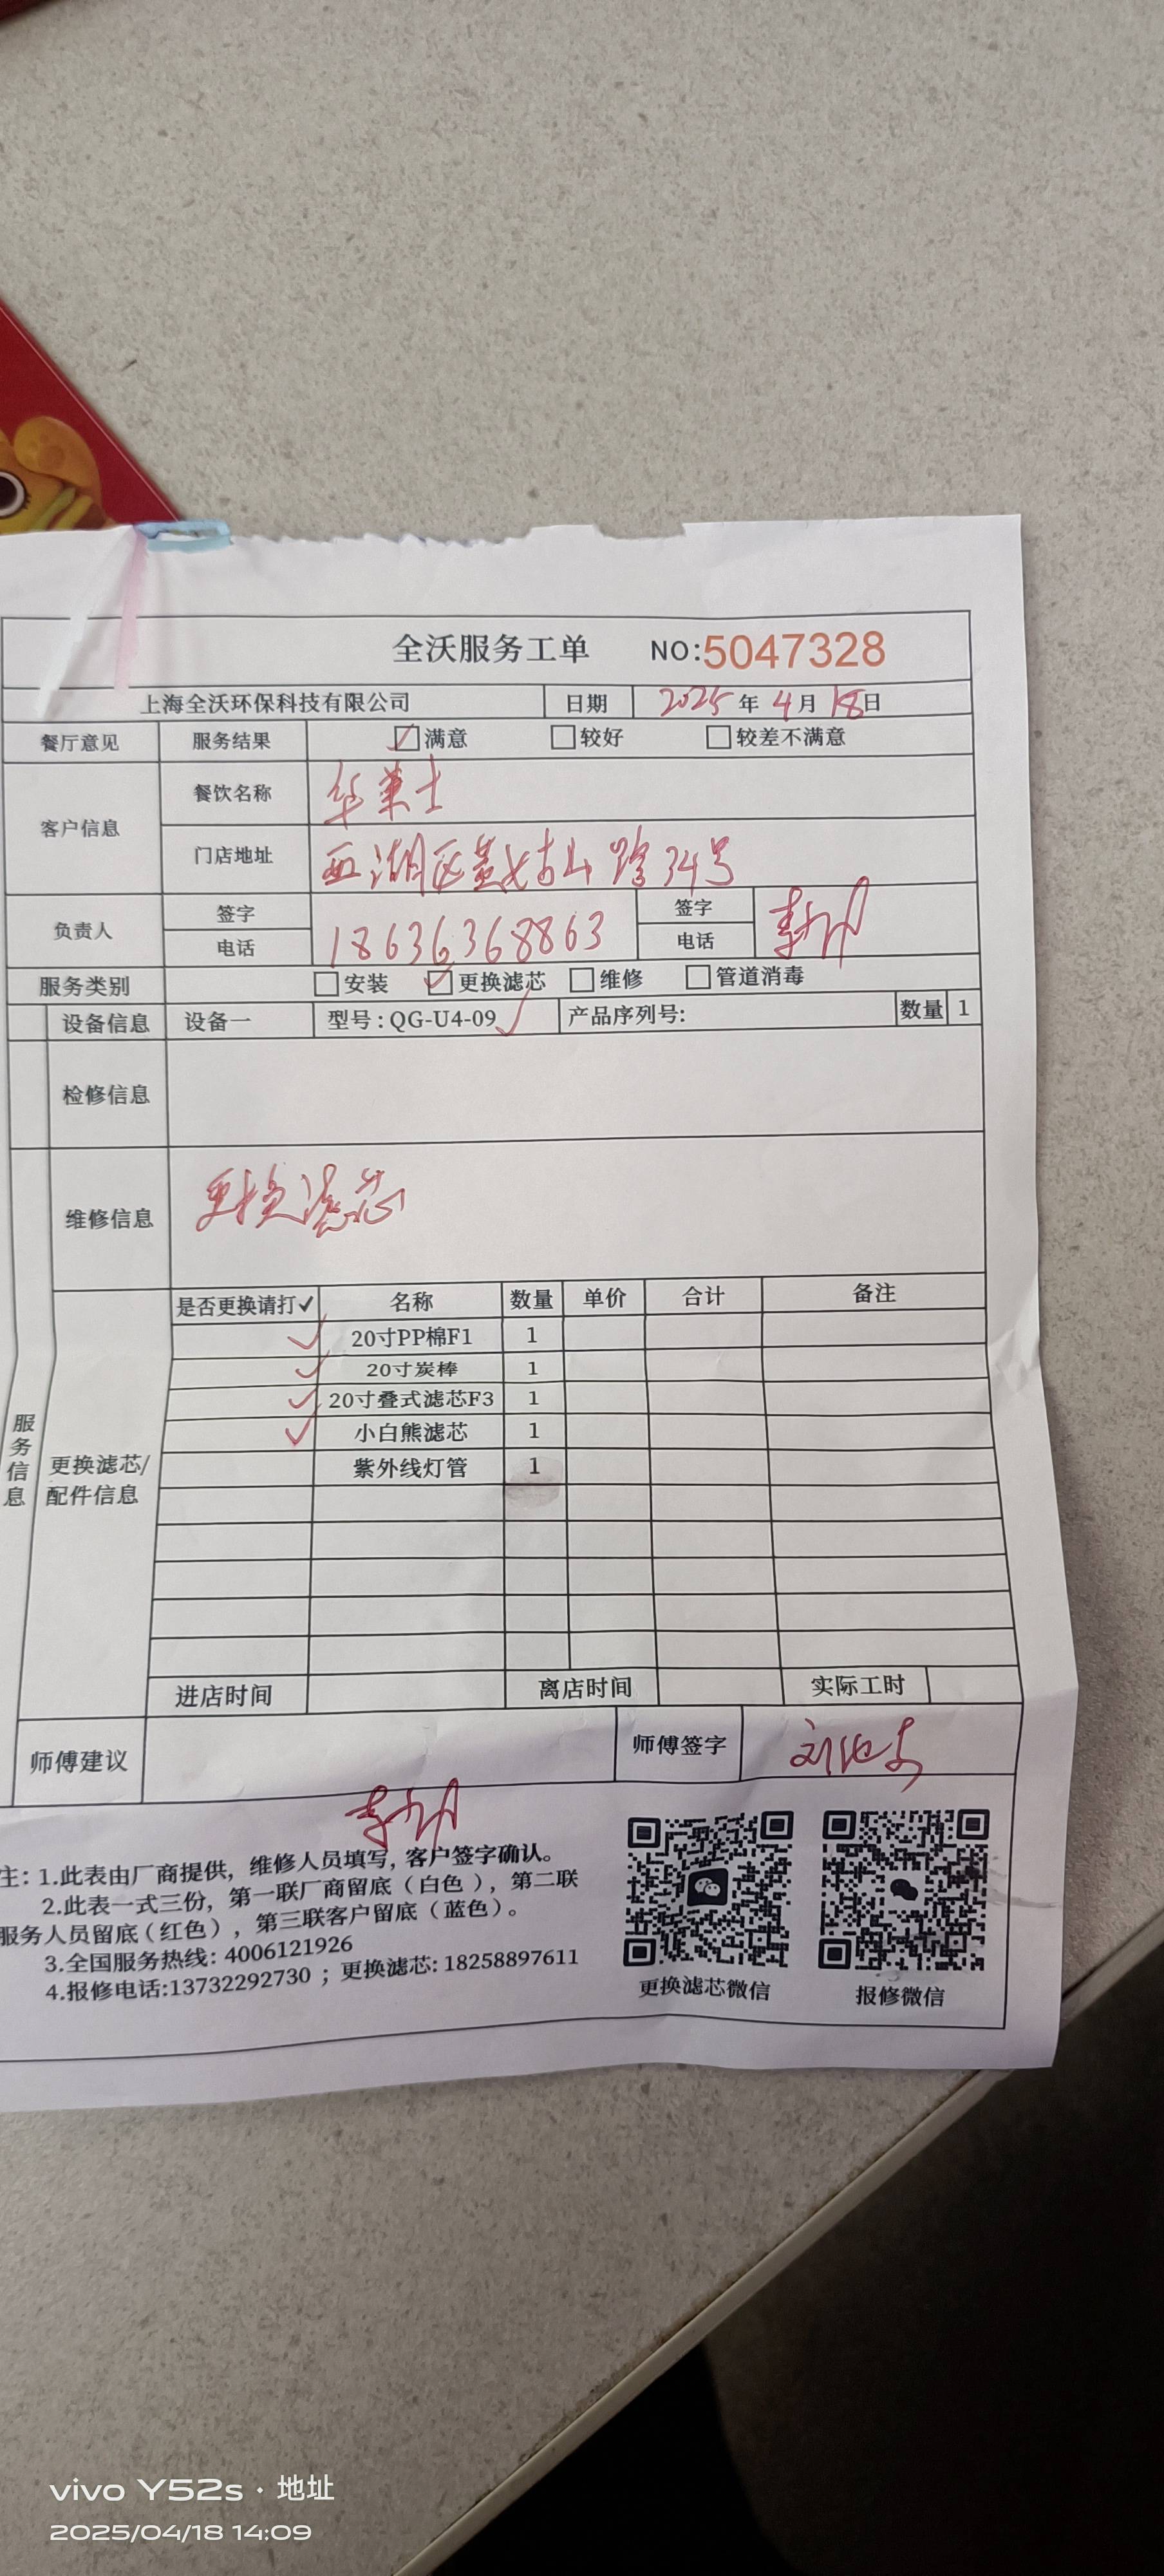 全沃服务工单 NO:5047328
上海全沃环保科技有限公司 日期 2025年4月18日
餐厅意见 服务结果 满意 较好 较差不满意
客户信息 餐饮名称 华莱士
门店地址 西湖区黄姑山路34号
负责人 签字 签字
电话 18636368863 电话
服务类别 安装 更换滤芯 维修 管道消毒
设备信息 设备一 型号:QG-U4-09 产品序列号: 数量 1
检修信息
维修信息 更换滤芯
服务信息
更换滤芯/配件信息
是否更换请打✓ 名称 数量 单价 合计 备注
✓ 20寸PP棉F1 1
✓ 20寸炭棒 1
✓ 20寸叠式滤芯F3 1
✓ 小白熊滤芯 1
紫外线灯管 1
进店时间 离店时间 实际工时
师傅建议 师傅签字
注: 1.此表由厂商提供, 维修人员填写, 客户签字确认。
2.此表一式三份, 第一联厂商留底(白色), 第二联
服务人员留底(红色), 第三联客户留底(蓝色)。
3.全国服务热线: 4006121926
4.报修电话:13732292730 ; 更换滤芯: 18258897611
更换滤芯微信 报修微信
vivo Y52s · 地址
2025/04/18 14:09